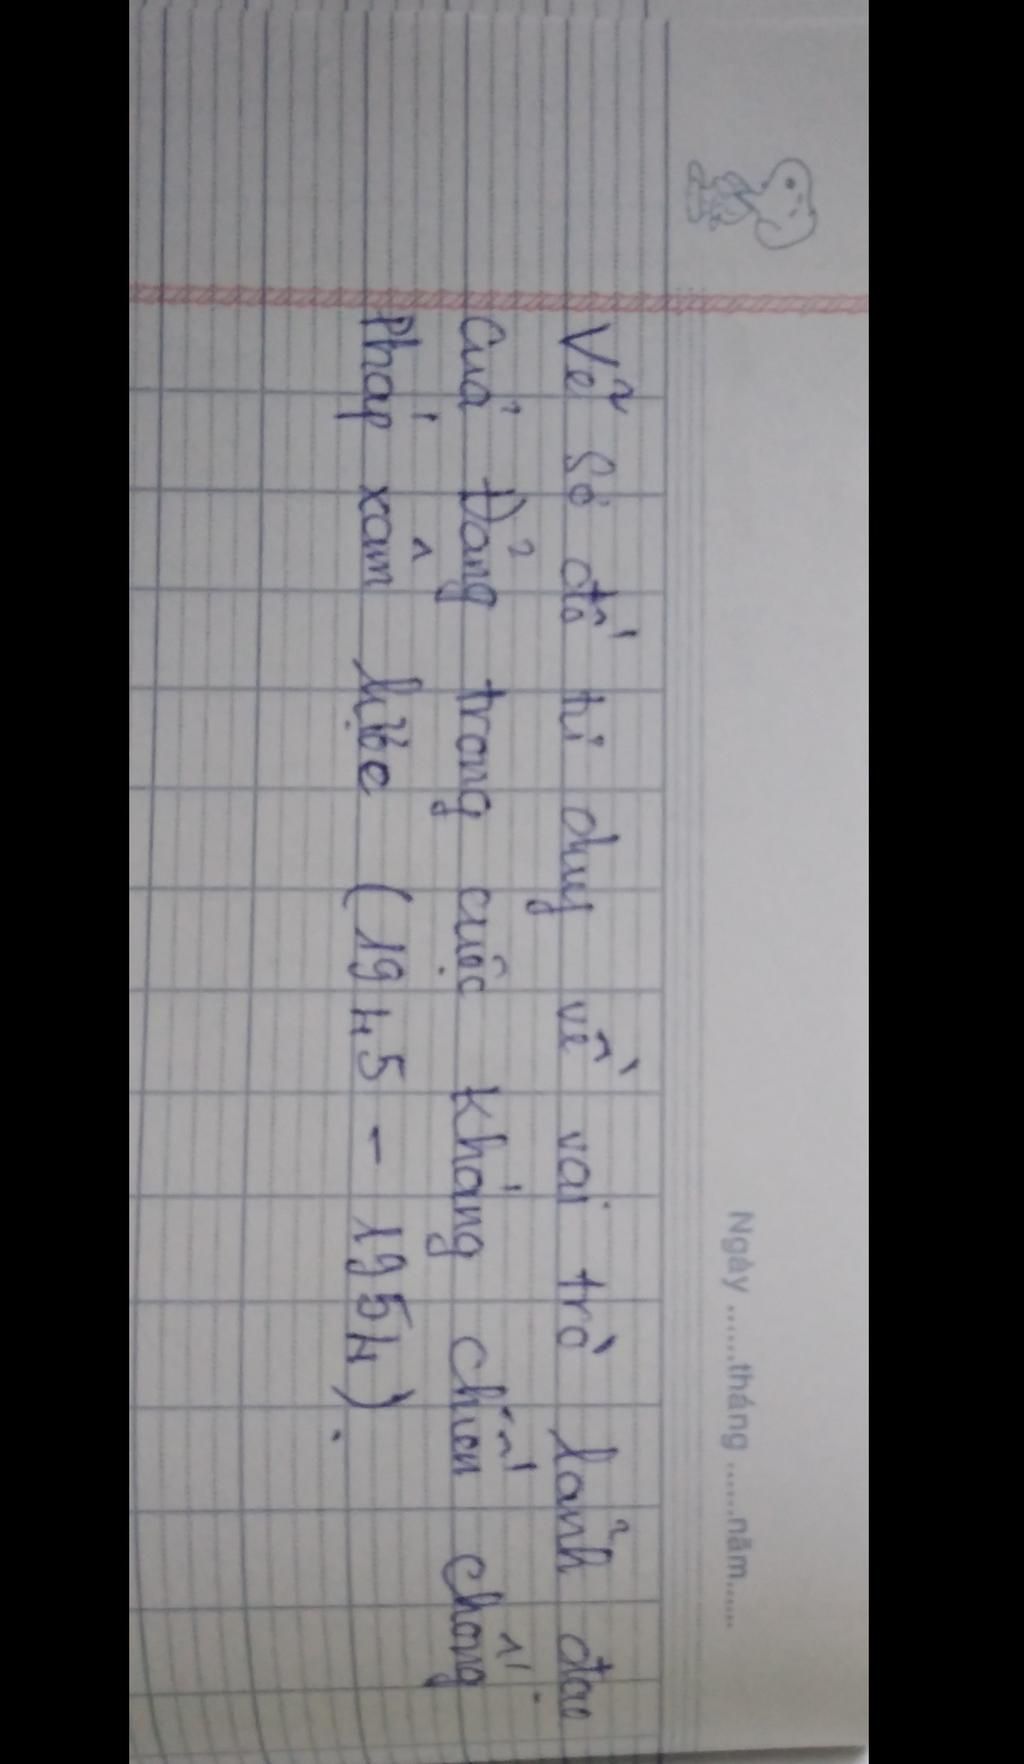 Ngày ......tháng ......năm......
Vẽ sơ đồ tư duy về vai trò lãnh đạo
của Đảng trong cuộc kháng chiến chống
Pháp xâm lược (1945 - 1954).